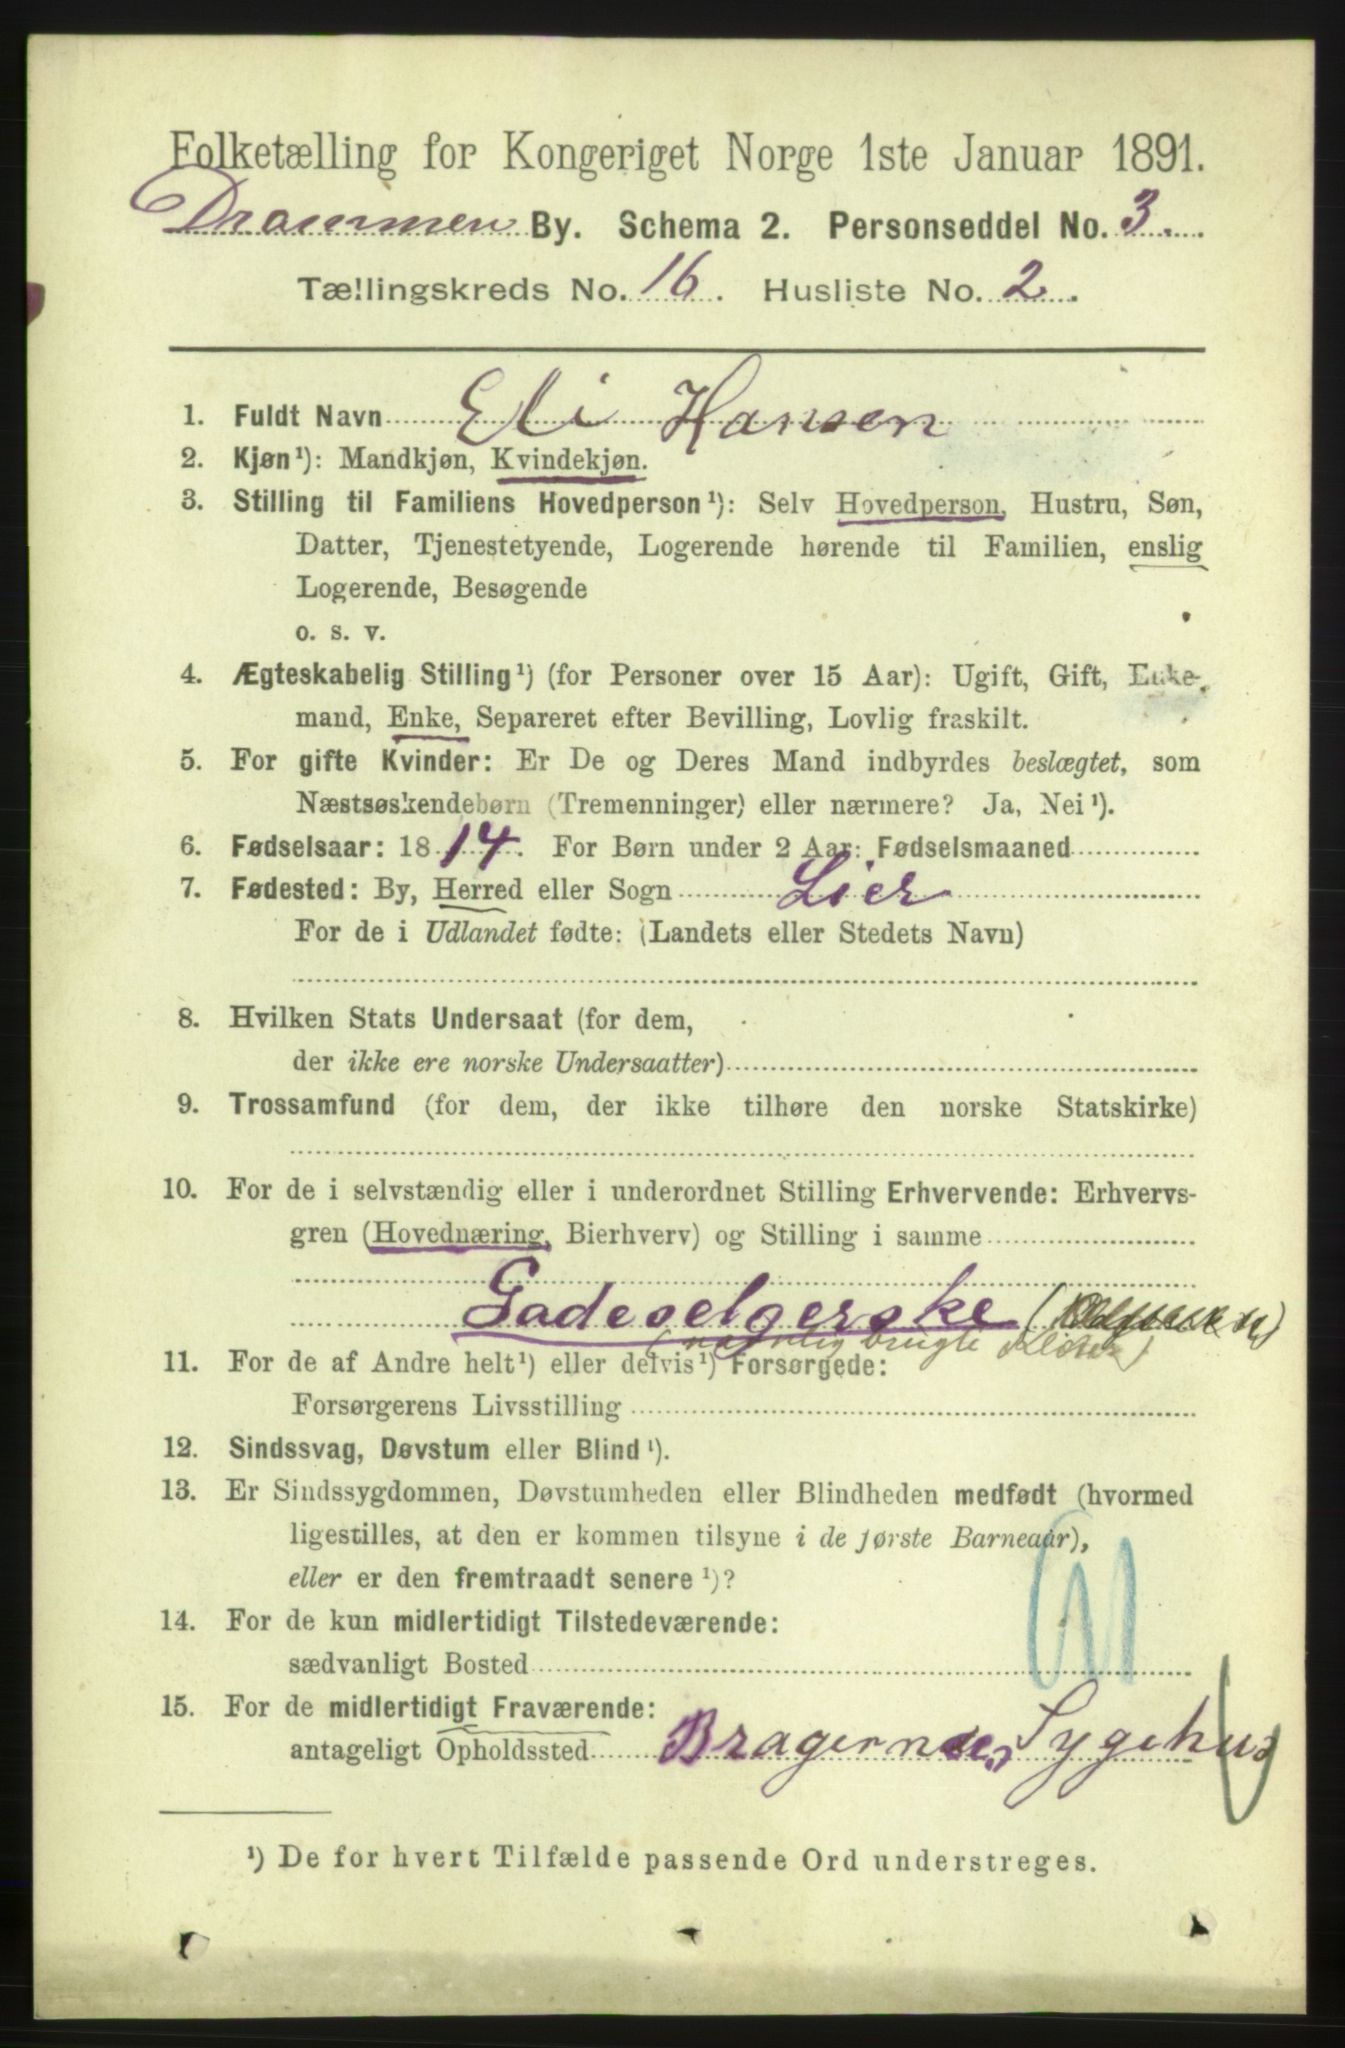 Folketælling for Kongeriget Norge 1ste Januar 1891.
Drammen By. Schema 2. Personseddel No. 3.
Tællingskreds No. 16. Husliste No. 2.
1. Fuldt Navn Eli Hansen
2. Kjøn¹): Mandkjøn, Kvindekjøn.
3. Stilling til Familiens Hovedperson¹): Selv Hovedperson, Hustru, Søn,
Datter, Tjenestetyende, Logerende hørende til Familien, enslig
Logerende, Besøgende
o. s. v.
4. Ægteskabelig Stilling¹) (for Personer over 15 Aar): Ugift, Gift, Enke-
mand, Enke, Separeret efter Bevilling, Lovlig fraskilt.
5. For gifte Kvinder: Er De og Deres Mand indbyrdes beslægtet, som
Næstsøskendebørn (Tremenninger) eller nærmere? Ja, Nei¹).
6. Fødselsaar: 1814. For Børn under 2 Aar: Fødselsmaaned
7. Fødested: By, Herred eller Sogn Lier
For de i Udlandet fødte: (Landets eller Stedets Navn)
8. Hvilken Stats Undersaat (for dem,
der ikke ere norske Undersaatter)
9. Trossamfund (for dem, der ikke tilhøre den norske Statskirke)
10. For de i selvstændig eller i underordnet Stilling Erhvervende: Erhvervs-
gren (Hovednæring, Bierhverv) og Stilling i samme
Gadeselgerske
(navnlig brugte Klæder)
11. For de af Andre helt¹) eller delvis¹) Forsørgede:
Forsørgerens Livsstilling
12. Sindssvag, Døvstum eller Blind¹).
13. Er Sindssygdommen, Døvstumheden eller Blindheden medfødt (hvormed
ligestilles, at den er kommen tilsyne i de første Barneaar),
eller er den fremtraadt senere¹)?
14. For de kun midlertidigt Tilstedeværende:
sædvanligt Bosted
15. For de midlertidigt Fraværende:
antageligt Opholdssted Bragernes Sygehus
¹) De for hvert Tilfælde passende Ord understreges.